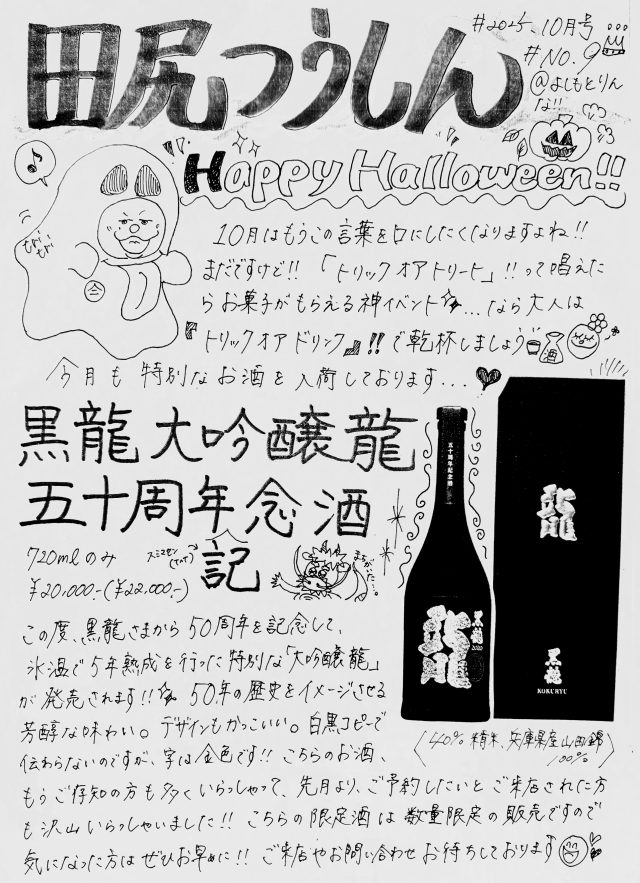 田尻つうしん
#2025.10月号
#No.9
@よしもとりんな!!
Happy Halloween!!
10月はもうこの言葉を口にしたくなりますよね!!
まだですけど!! 「トリックオアトリート」!! って唱えた
らお菓子がもらえる神イベント...なら大人は
『トリックオアドリンク』!! で乾杯しましょう
酒
今月も特別なお酒を入荷しております...
黒龍 大吟醸 龍
五十周年念酒
記
720mlのみ
¥20,000-(¥22,000-)
スミマセン(T^T)
まちがえた...。
五十周年記念酒
龍
黒龍
2020
龍
黒龍
KOKURYU
この度、黒龍さまから50周年を記念して、
氷温で5年熟成を行った特別な「大吟醸 龍」
が発売されます!! 50年の歴史をイメージさせる
芳醇な味わい。デザインもかっこいい。白黒コピーで
伝わらないのですが、字は金色です!! こちらのお酒、
〈40%精米、兵庫県産山田錦100%〉
もうご存知の方も多くいらっしゃって、先月より、ご予約したいとご来店された方
も沢山いらっしゃいました!! こちらの限定酒は数量限定の販売ですので
気になった方はぜひお早めに!! ご来店やお問い合わせお待ちしております